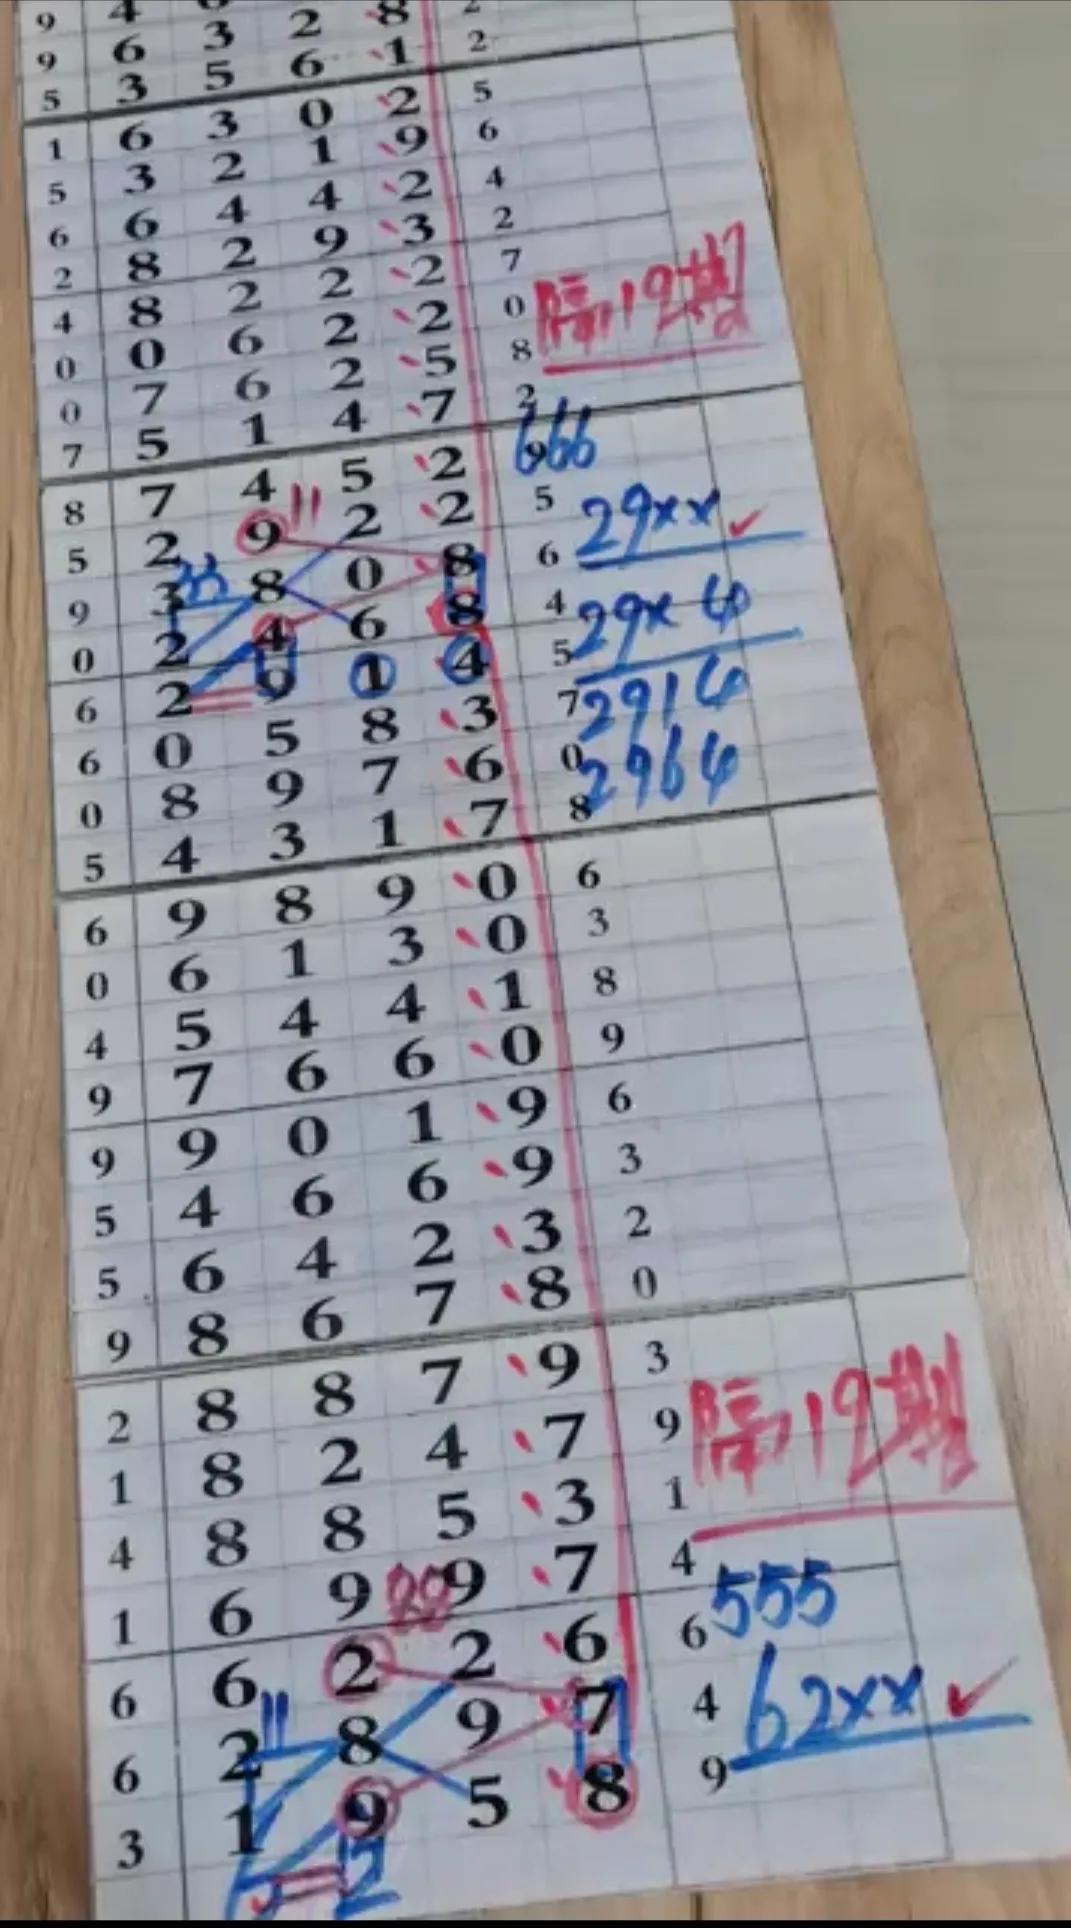 9 4
9 6 3 2 8 2
5 3 5 6 1 2
1 6 3 0 2 5
5 3 2 1 9 6
6 6 4 4 2 4
2 8 2 9 3 2
4 8 2 2 2 7
0 0 6 2 2 0 隔19期
0 7 6 2 5 8
7 5 1 4 7 2
8 7 4 5 2 9 666
5 2 9 11 2 2 5 29xx
9 3 33 8 0 8 6
0 2 4 6 8 4 29x4
6 2 9 1 4 5
6 0 5 8 3 7 2914
0 8 9 7 6 0 2964
5 4 3 1 7 8
6 9 8 9 0 6
0 6 1 3 0 3
4 5 4 4 1 8
9 7 6 6 0 9
9 9 0 1 9 6
5 4 6 6 9 3
5 6 4 2 3 2
9 8 6 7 8 0
2 8 8 7 9 3
1 8 2 4 7 9 隔19期
4 8 8 5 3 1
1 6 9 88 9 7 4
6 6 2 2 6 6 555
6 2 11 8 9 7 4 62xx
3 1 9 5 8 9
2